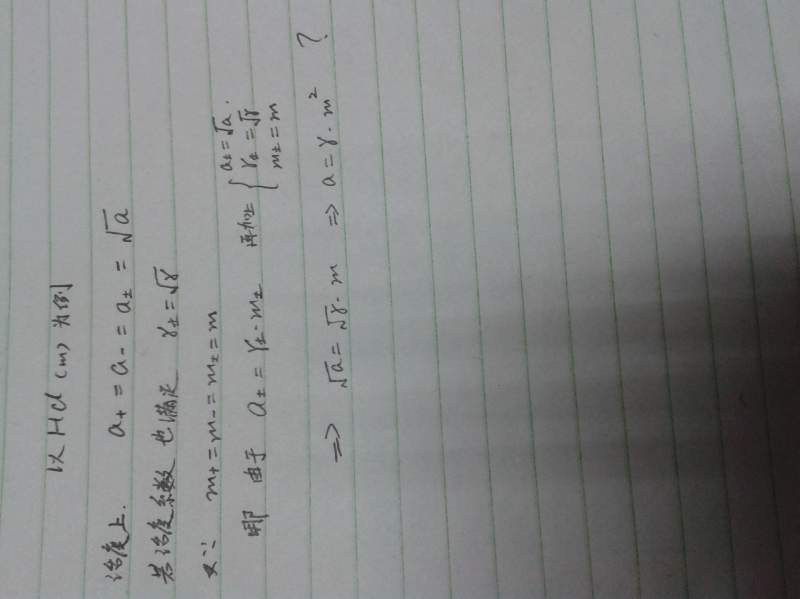 以 HCl (m) 为例
活度上. a₊ = a₋ = a± = √a
若活度系数也满足 γ± = √γ
又∵ m₊ = m₋ = m± = m
那由于 a± = γ±·m± 再加上 { a± = √a. γ± = √γ m± = m
⇒ √a = √γ·m ⇒ a = γ·m² ?